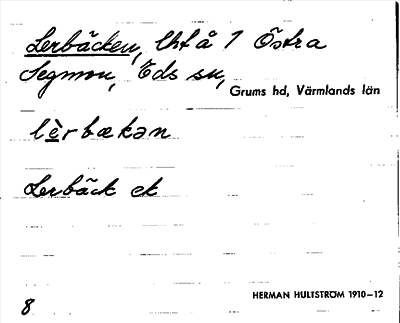 Lerbäcken, lht å 1 Östra
Segmon, Eds sn,
Grums hd, Värmlands län
lèrbækən
Lerbäck ek
HERMAN HULTSTRÖM 1910–12
8